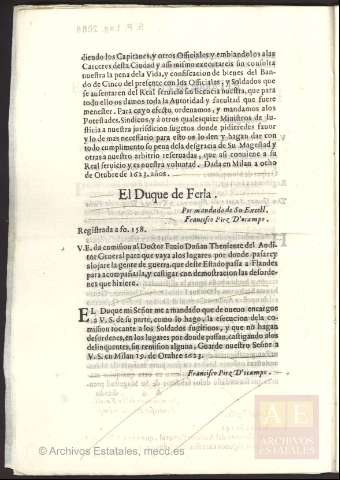 E P Leg. 2088
diendo los Capitanes, y otros Officiales y embiandolos a las
Carceres desta Ciudad y assi mismo executareis sin consulta
nuestra la pena dela Vida, y confiscacion de bienes del Ban-
do de Cinco del presente con los Officiales, y Soldados que
se ausentaren del Real servicio sin licencia nuestra, que para
todo ello os damos toda la Autoridad y facultad que fuere
menester. Para cuyo efeto, ordenamos, y mandamos alos
Potestades, Sindicos, y à otros qualesquier Ministros de Iu-
sticia a nuestra jurisdicion sugetos donde pidieredes favor
y lo de mas necessario para esto os lo den y hagan dar con
todo cumplimento so pena dela desgracia de Su Magestad y
otras a nuestro arbitrio reservadas, que assi conviene a su
Real servicio y es nuestra voluntad. Dada en Milan a ocho
de Otubre de 1623. años.
El Duque de Feria.
Por mandado de Su Excell.
Francisco Pirez D'ocampo.
Registrada a fo. 158.
V.E. da comision al Doctor Fatio Doñan Theniente del Audi-
tor General para que vaya alos lugares por donde passare y
alojare la gente de guerra, que deste Estado passa à Flandes
para acompañarla, y castigar con demostracion las desorde-
nes que hiziere.
EL Duque mi Señor me a mandado que de nuevo encargue
a V.S. de su parte, como lo hago, la esecucion dela co-
mission tocante a los Soldados fugitivos, y que no hagan
desordenes, en los lugares por donde passan, castigando alos
delinquentes, sin remission alguna. Guarde nuestro Señor a
V.S. en Milan 19. de Otubre 1623.
Francisco Pirez D'ocampo.
AE
ARCHIVOS
ESTATALES
© Archivos Estatales, mecd.es